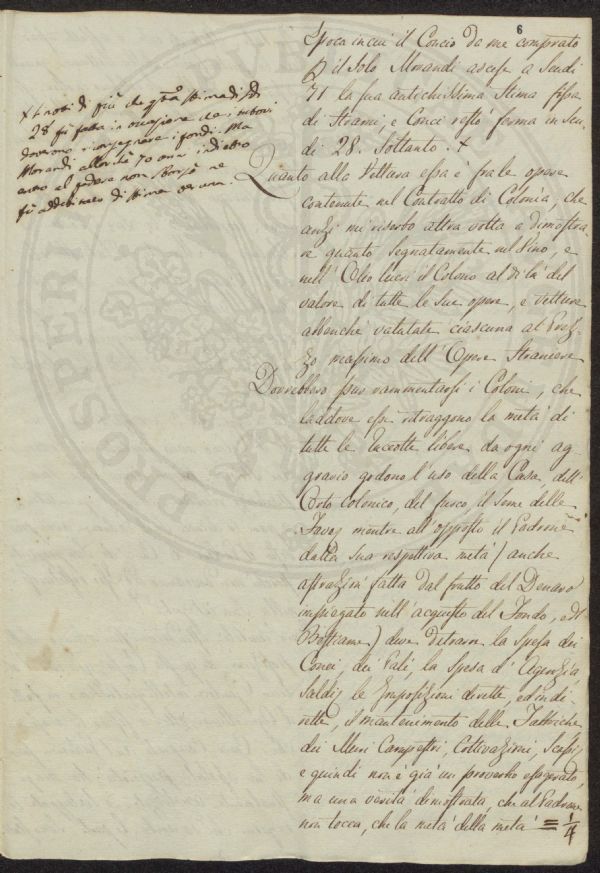 6
Epoca in cui il Concio da me comprato
p il solo Morandi ascese a Scudi
71 la sua antichissima Stima fissa
di Strami, e Conci restò ferma in Scu-
di 28. Soltanto. +
+ Notisi di più che qta Stima di Sdi
28 fù fatta in occasione che i
dovevano consegnare i fondi. Ma
Morandi allorchè 70 anni indietro
entrò al podere non
fù addebitato di Stima veruna.
Quanto alla Vettura essa è fra le opere
contenute nel Contratto di Colonìa, che
anzi mi riserbo altra volta a dimostra-
re quanto segnatamente nel Vino, e
nell' Olio lucri il Colono al di là del
valore di tutte le sue opere, e vetture
abbenchè valutate ciascuna al Prez-
zo massimo dell' Opere Straniere
Dovrebbero pur rammentarsi i Coloni, che
laddove essi ritraggono la metà di
tutte le Raccolte libere da ogni ag-
gravio godono l' uso della Casa, dell'
Orto Colonico, del fuoco, il Seme delle
Fave, mentre all' opposto il Padrone
dalla sua respettiva metà (anche
astrazion fatta dal frutto del Denaro
impiegato nell' acquisto del Fondo, ed
Bestiame) deve detrarre la Spesa dei
Conci, dei Pali, la Spesa d' Agenzia,
Saldi, le Imposizioni dirette, ed indi-
rette, il mantenimento delle Fabbriche
dei Muri Campestri, Coltivazioni, Scassi,
e quindi non è già un proverbio esagerato,
ma una verità dimostrata, che al Padrone
non tocca, che la metà della metà = 1/4